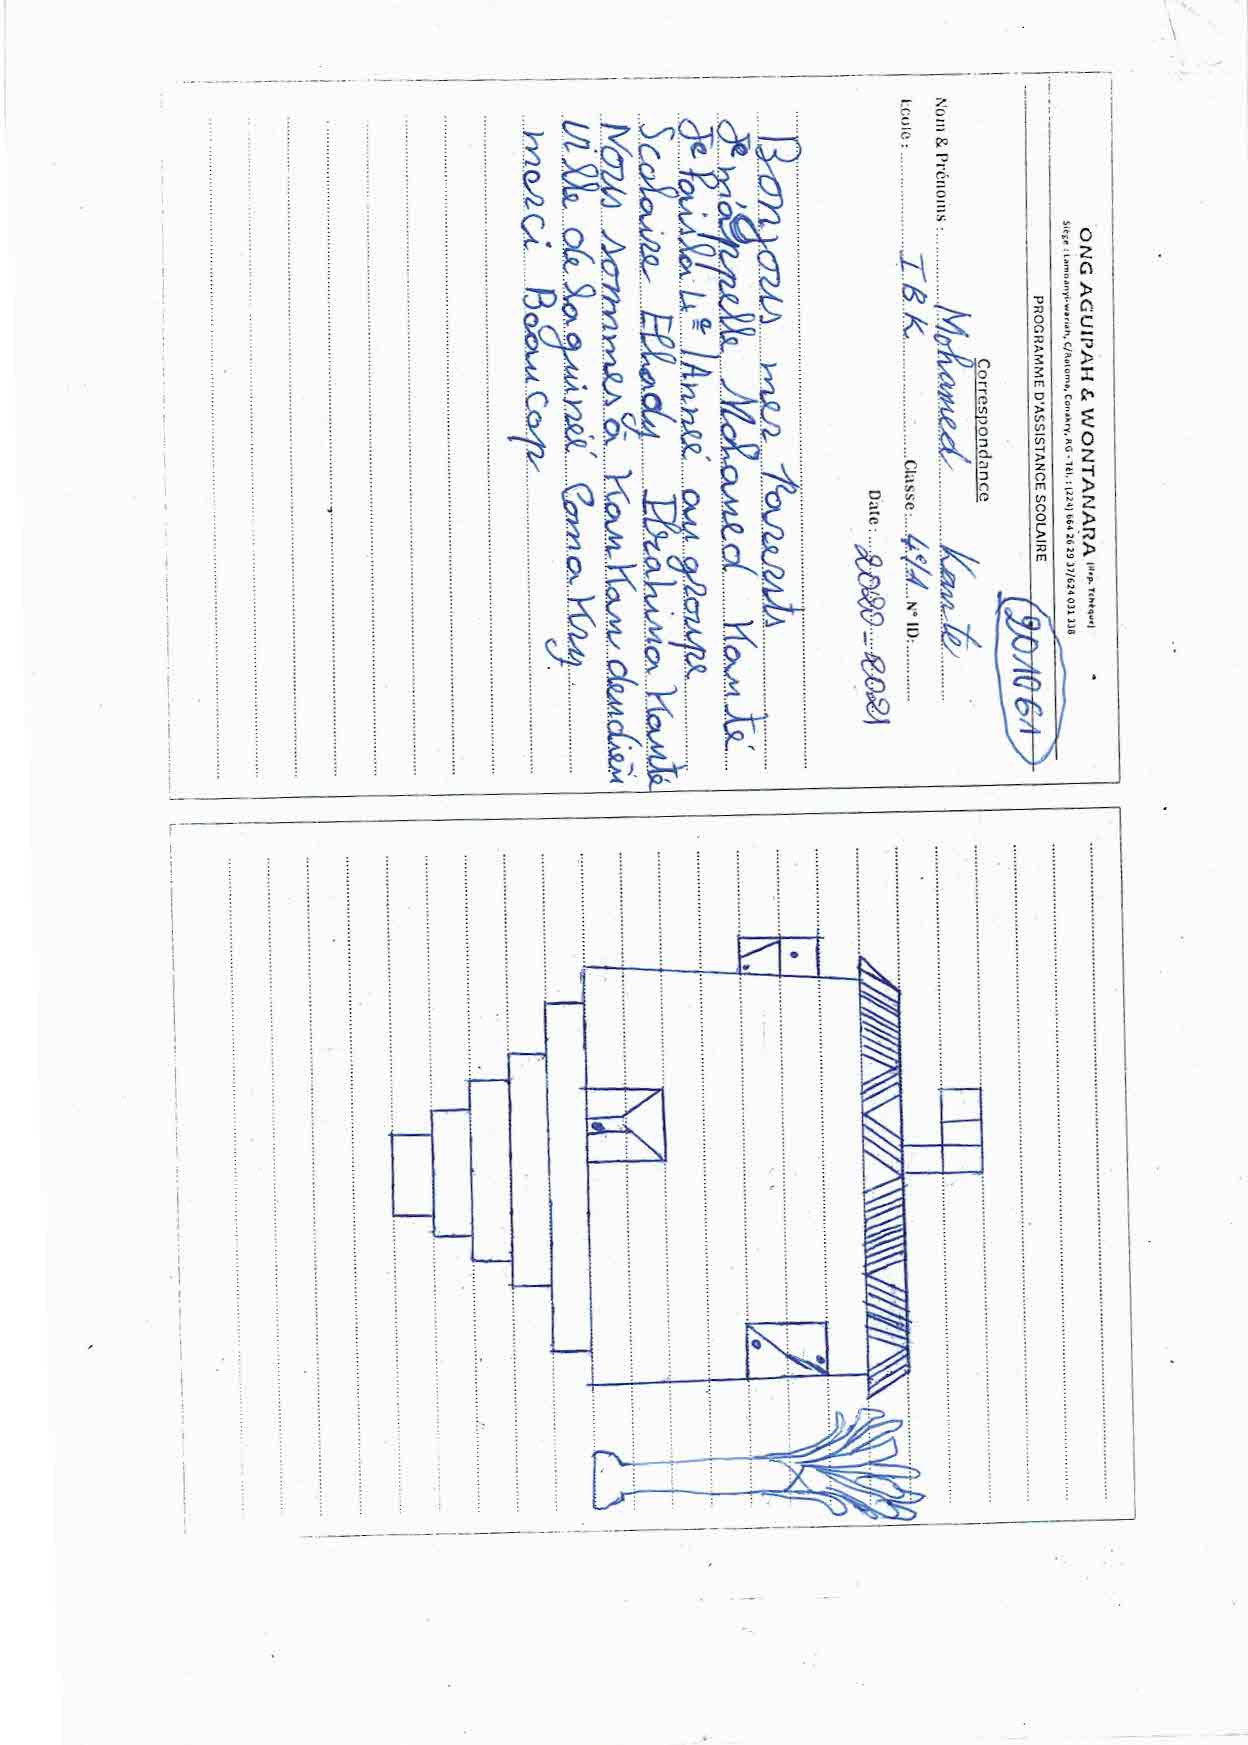 ONG AGUIPAH & WONTANARA (Rep. Tchèque)
Siège : Lambanyi-wariah, C/Ratoma, Conakry, RG - Tél. : (224) 664 26 29 37/624 031 338
PROGRAMME D'ASSISTANCE SCOLAIRE
201061
Correspondance
Nom & Prénoms : Mohamed Kanté
Ecole : IBK Classe 4e/A N° ID:
Date : 2020-2021
Bonjous mer Parersts
Je m'appelle Mohamed Kanté
Je fais la 4e/Anneé au groupe
Scolaire Elhady Ibrahima Kanté
Nous sommes à KanKan deudièm
ville de la guineé ConaKry.
merci Beaucop